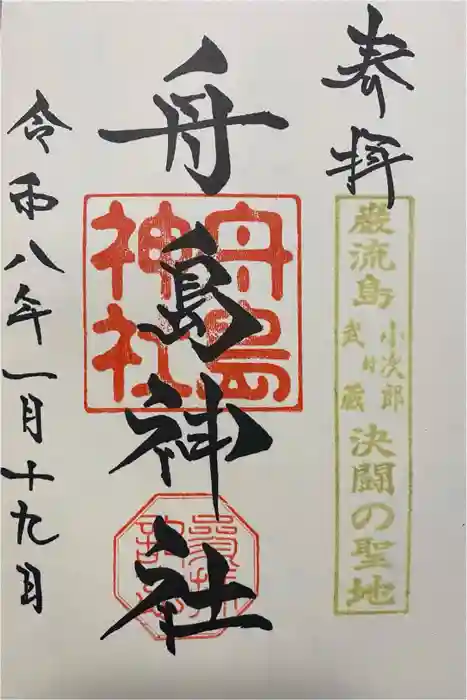 奉拝
巌流島
小次郎
武蔵
決闘の聖地
舟島神社
舟島
神社
令和八年一月十九日